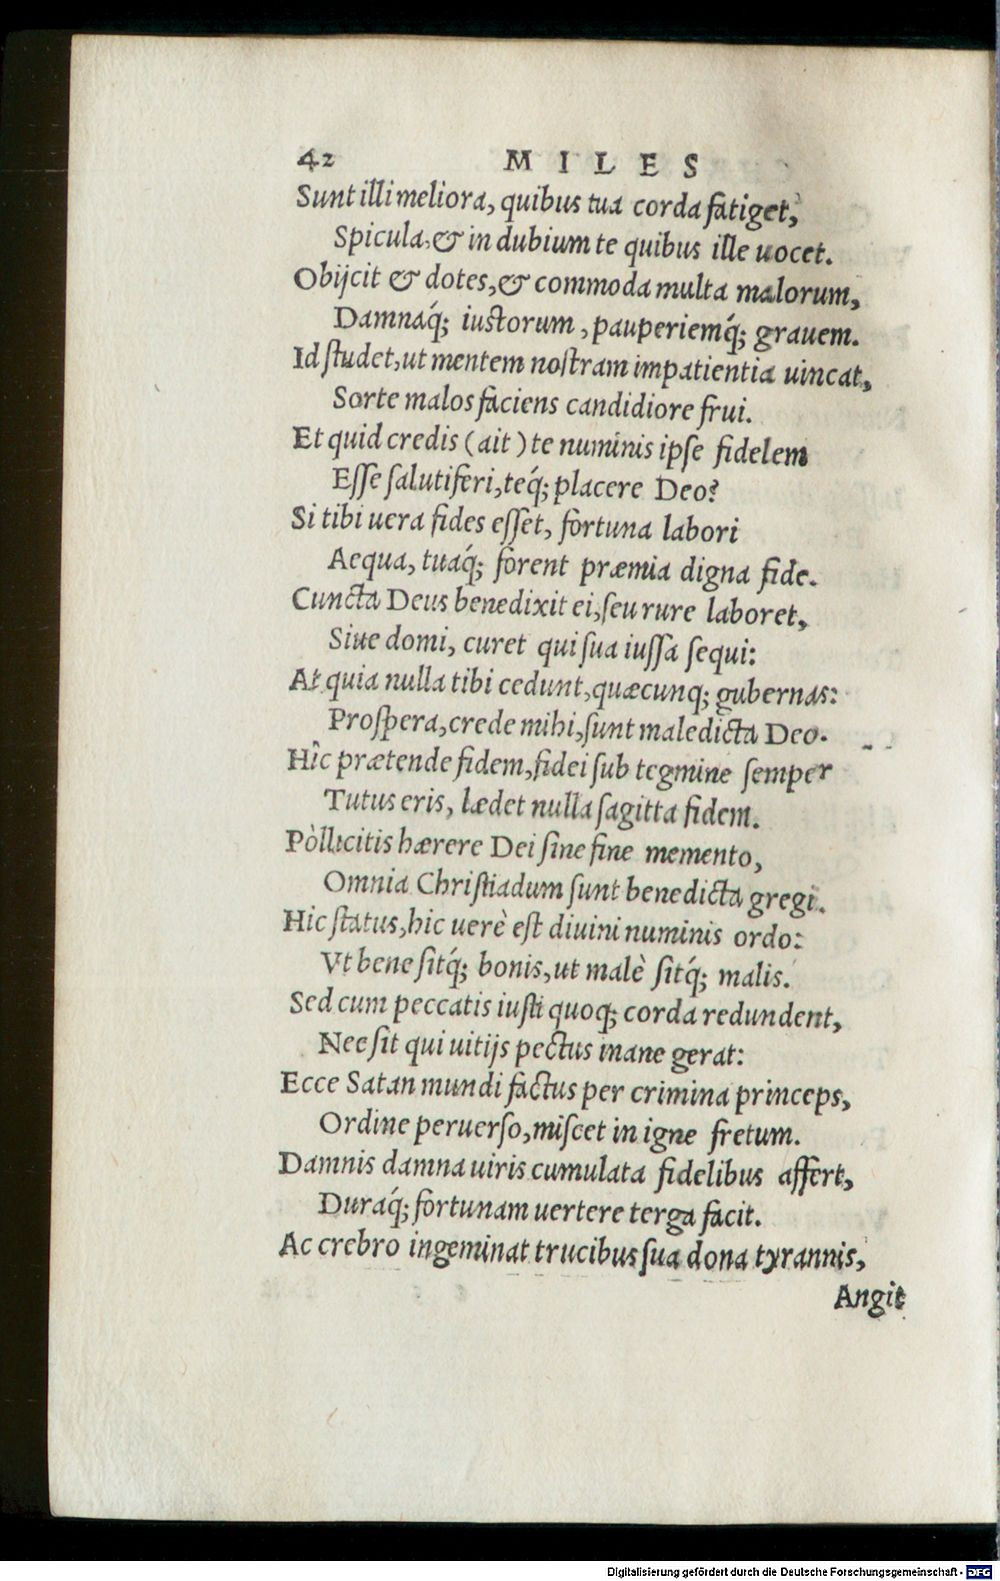 42 MILES
Sunt illi meliora, quibus tua corda fatiget,
Spicula, & in dubium te quibus ille uocet.
Obijcit & dotes, & commoda multa malorum,
Damnaq́; iustorum, pauperiemq́; grauem.
Id studet, ut mentem nostram impatientia uincat,
Sorte malos faciens candidiore frui.
Et quid credis (ait) te numinis ipse fidelem
Esse salutiferi, teq́; placere Deo?
Si tibi uera fides esset, fortuna labori
Aequa, tuaq́; forent præmia digna fide.
Cuncta Deus benedixit ei, seu rure laboret,
Siue domi, curet qui sua iussa sequi:
At quia nulla tibi cedunt, quæcunq; gubernas:
Prospera, crede mihi, sunt maledicta Deo.
Hîc prætende fidem, fidei sub tegmine semper
Tutus eris, lædet nulla sagitta fidem.
Pòllicitis hærere Dei sine fine memento,
Omnia Christiadum sunt benedicta gregi.
Hic status, hic uerè est diuini numinis ordo:
Vt bene sitq́; bonis, ut malè sitq́; malis.
Sed cum peccatis iusti quoq; corda redundent,
Nec sit qui uitijs pectus inane gerat:
Ecce Satan mundi factus per crimina princeps,
Ordine peruerso, miscet in igne fretum.
Damnis damna uiris cumulata fidelibus affert,
Duraq́; fortunam uertere terga facit.
Ac crebro ingeminat trucibus sua dona tyrannis,
Angit
Digitalisierung gefördert durch die Deutsche Forschungsgemeinschaft - DFG